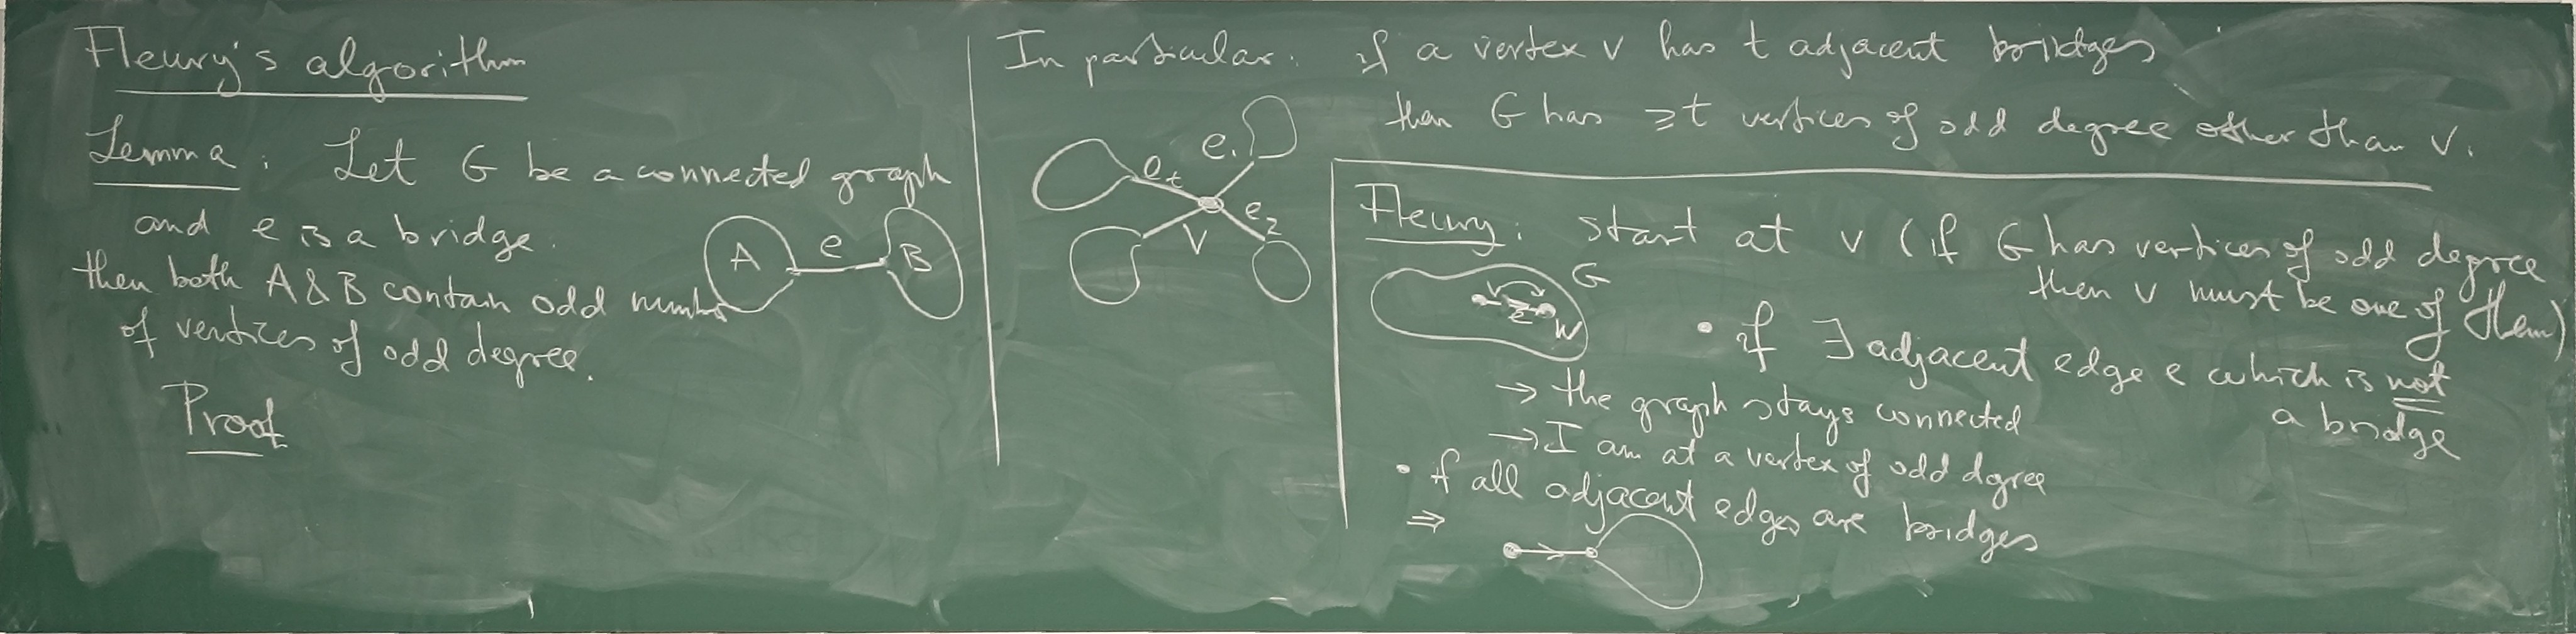 Fleury's algorithm
Lemma: Let G be a connected graph
and e is a bridge.
then both A & B contain odd number
of vertices of odd degree.
A e B
Proof
In particular: if a vertex v has t adjacent bridges
then G has ≥t vertices of odd degree other than v.
e₁
eₜ
e₂
V
Fleury: start at v (if G has vertices of odd degree
then v must be one of them)
G
v
e
w
• if ∃ adjacent edge e which is not
a bridge
→ the graph stays connected
→ I am at a vertex of odd dgree
• if all adjacent edges are bridges
⇒